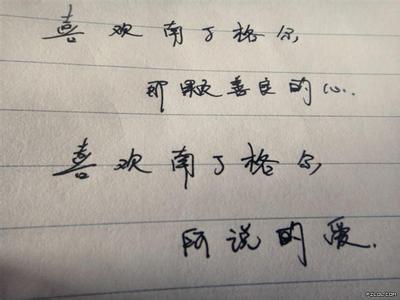 喜欢南丁格尔
那颗善良的心..
喜欢南丁格尔
所说的爱.